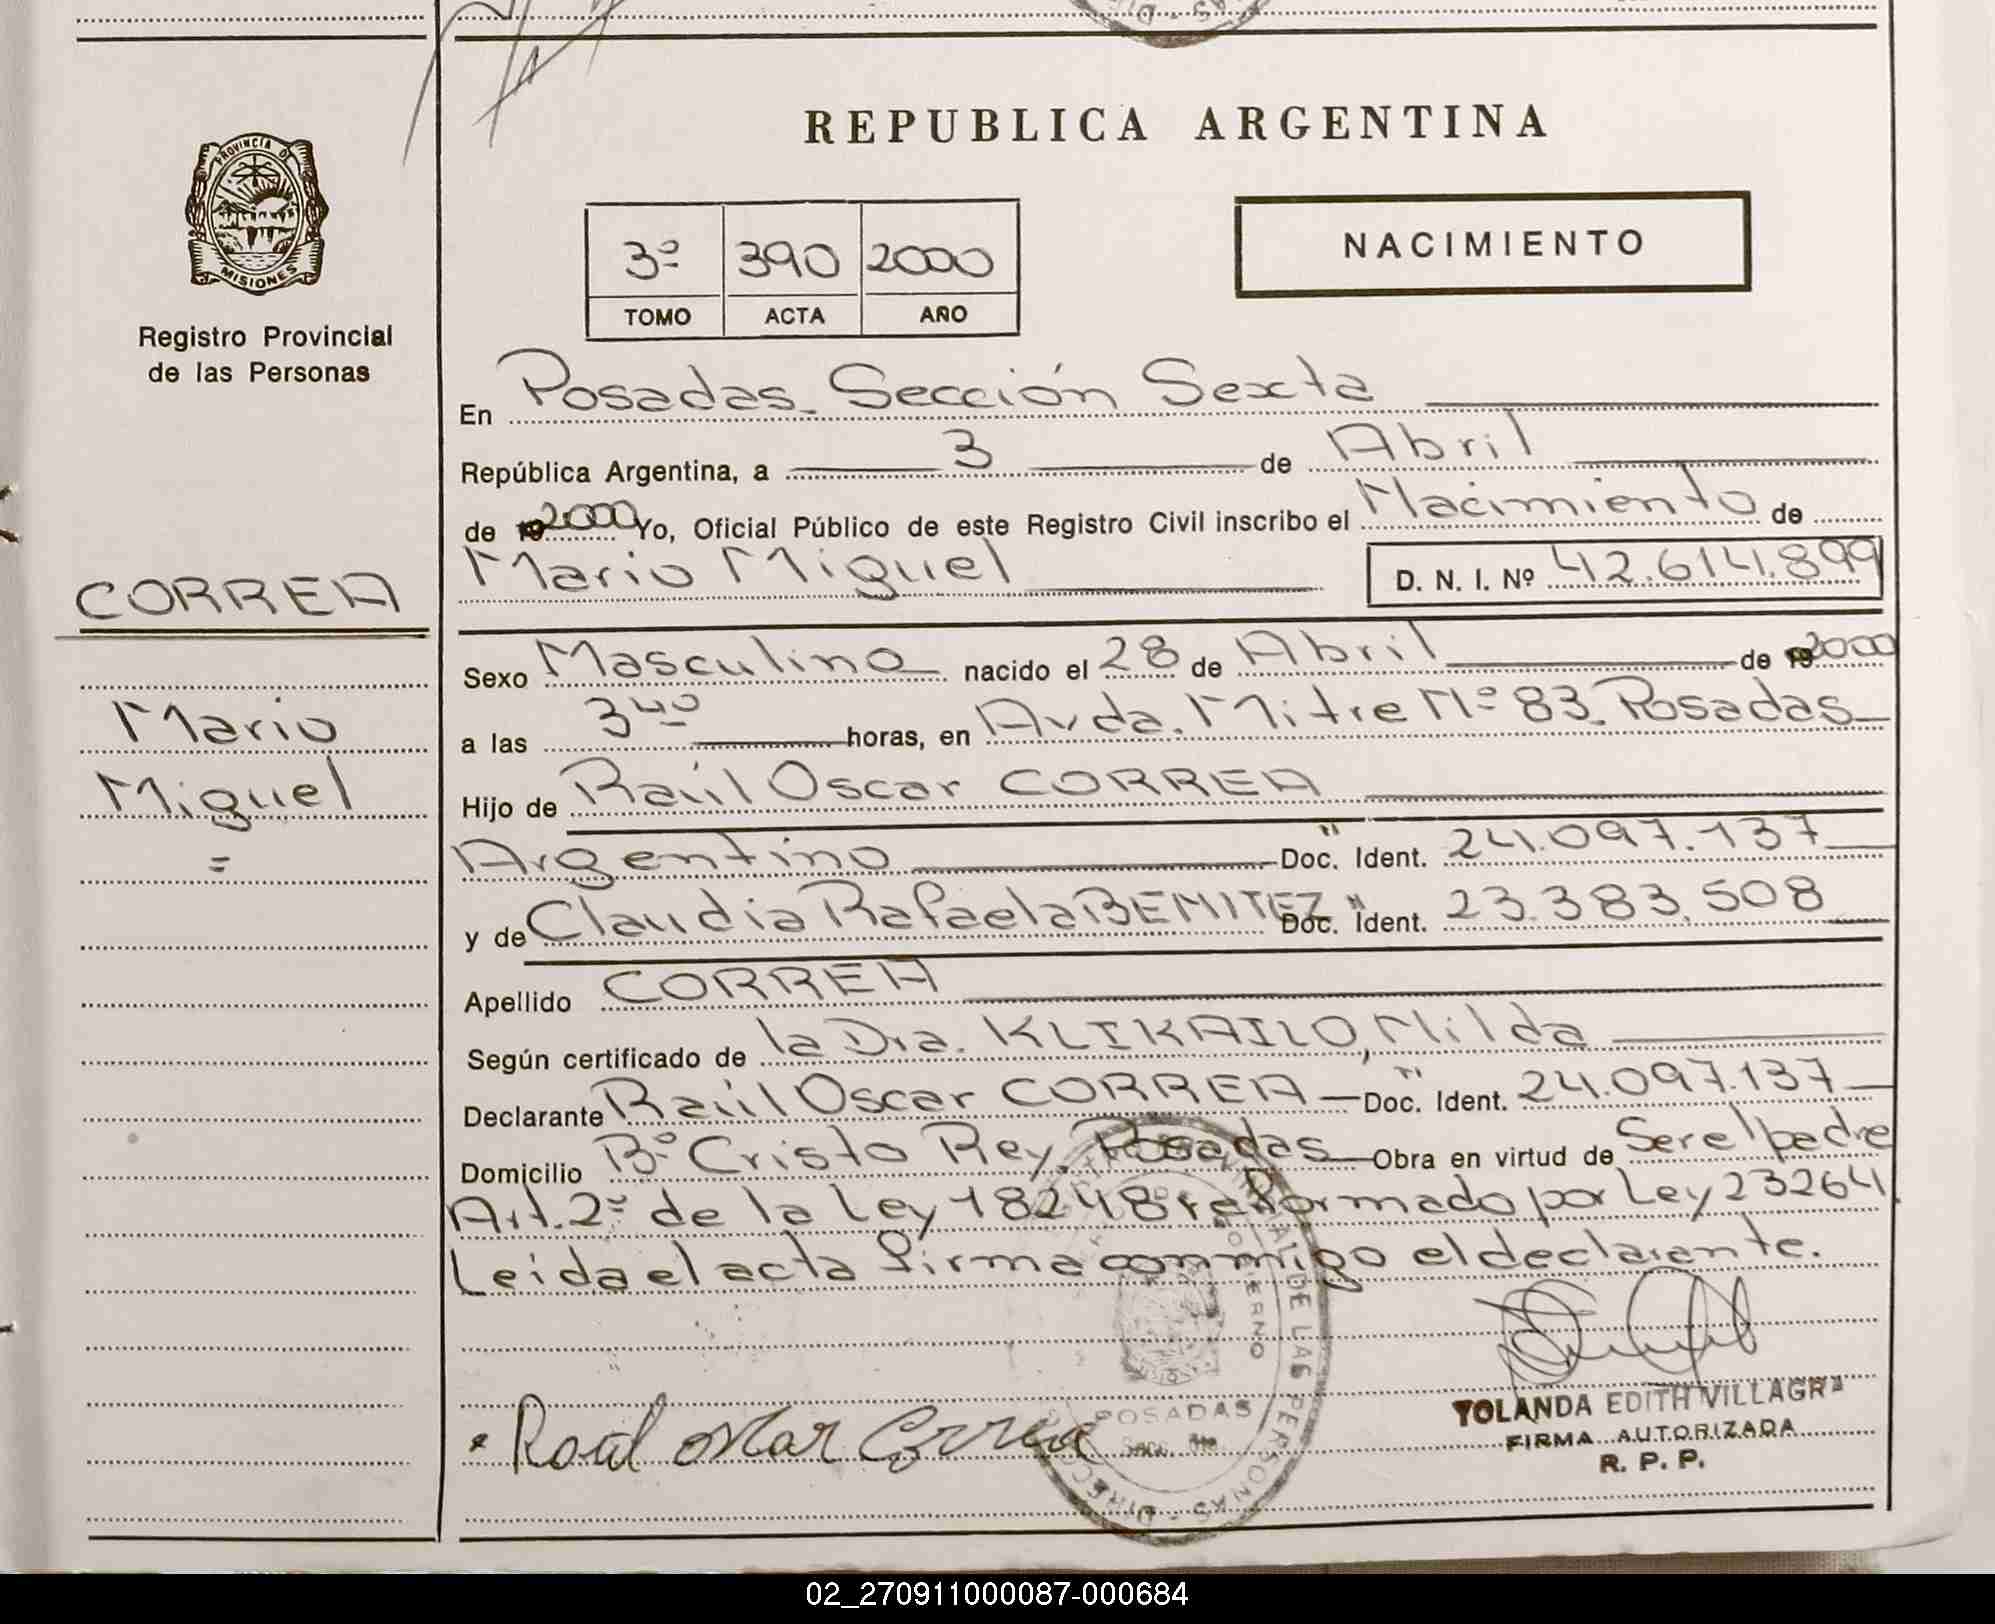 REPUBLICA ARGENTINA
PROVINCIA DE
MISIONES
Registro Provincial
de las Personas
3º 390 2000
TOMO ACTA AÑO
NACIMIENTO
En Posadas. Sección Sexta
República Argentina, a 3 de Abril
de 2000 Yo, Oficial Público de este Registro Civil inscribo el Nacimiento de
Mario Miguel D. N. I. Nº 42.614.899
CORREA
Mario
Miguel
=
Sexo Masculino nacido el 28 de Abril de 2000
a las 3 40 horas, en Avda. Mitre Nº 83. Posadas
Hijo de Raúl Oscar CORREA
Argentino Doc. Ident. 24.097.137
y de Claudia Rafaela BENITEZ Doc. Ident. 23.383.508
Apellido CORREA
Según certificado de la Dra. KLIKAILO, Nilda
Declarante Raúl Oscar CORREA Doc. Ident. 24.097.137
Domicilio Bº Cristo Rey. Posadas Obra en virtud de Ser el padre
Art. 2º de la Ley 18248 reformado por Ley 23264.
Leida el acta firma conmigo el declarante.
Raul oscar Correa
POSADAS
YOLANDA EDITH VILLAGRA
FIRMA AUTORIZADA
R. P. P.
02_270911000087-000684